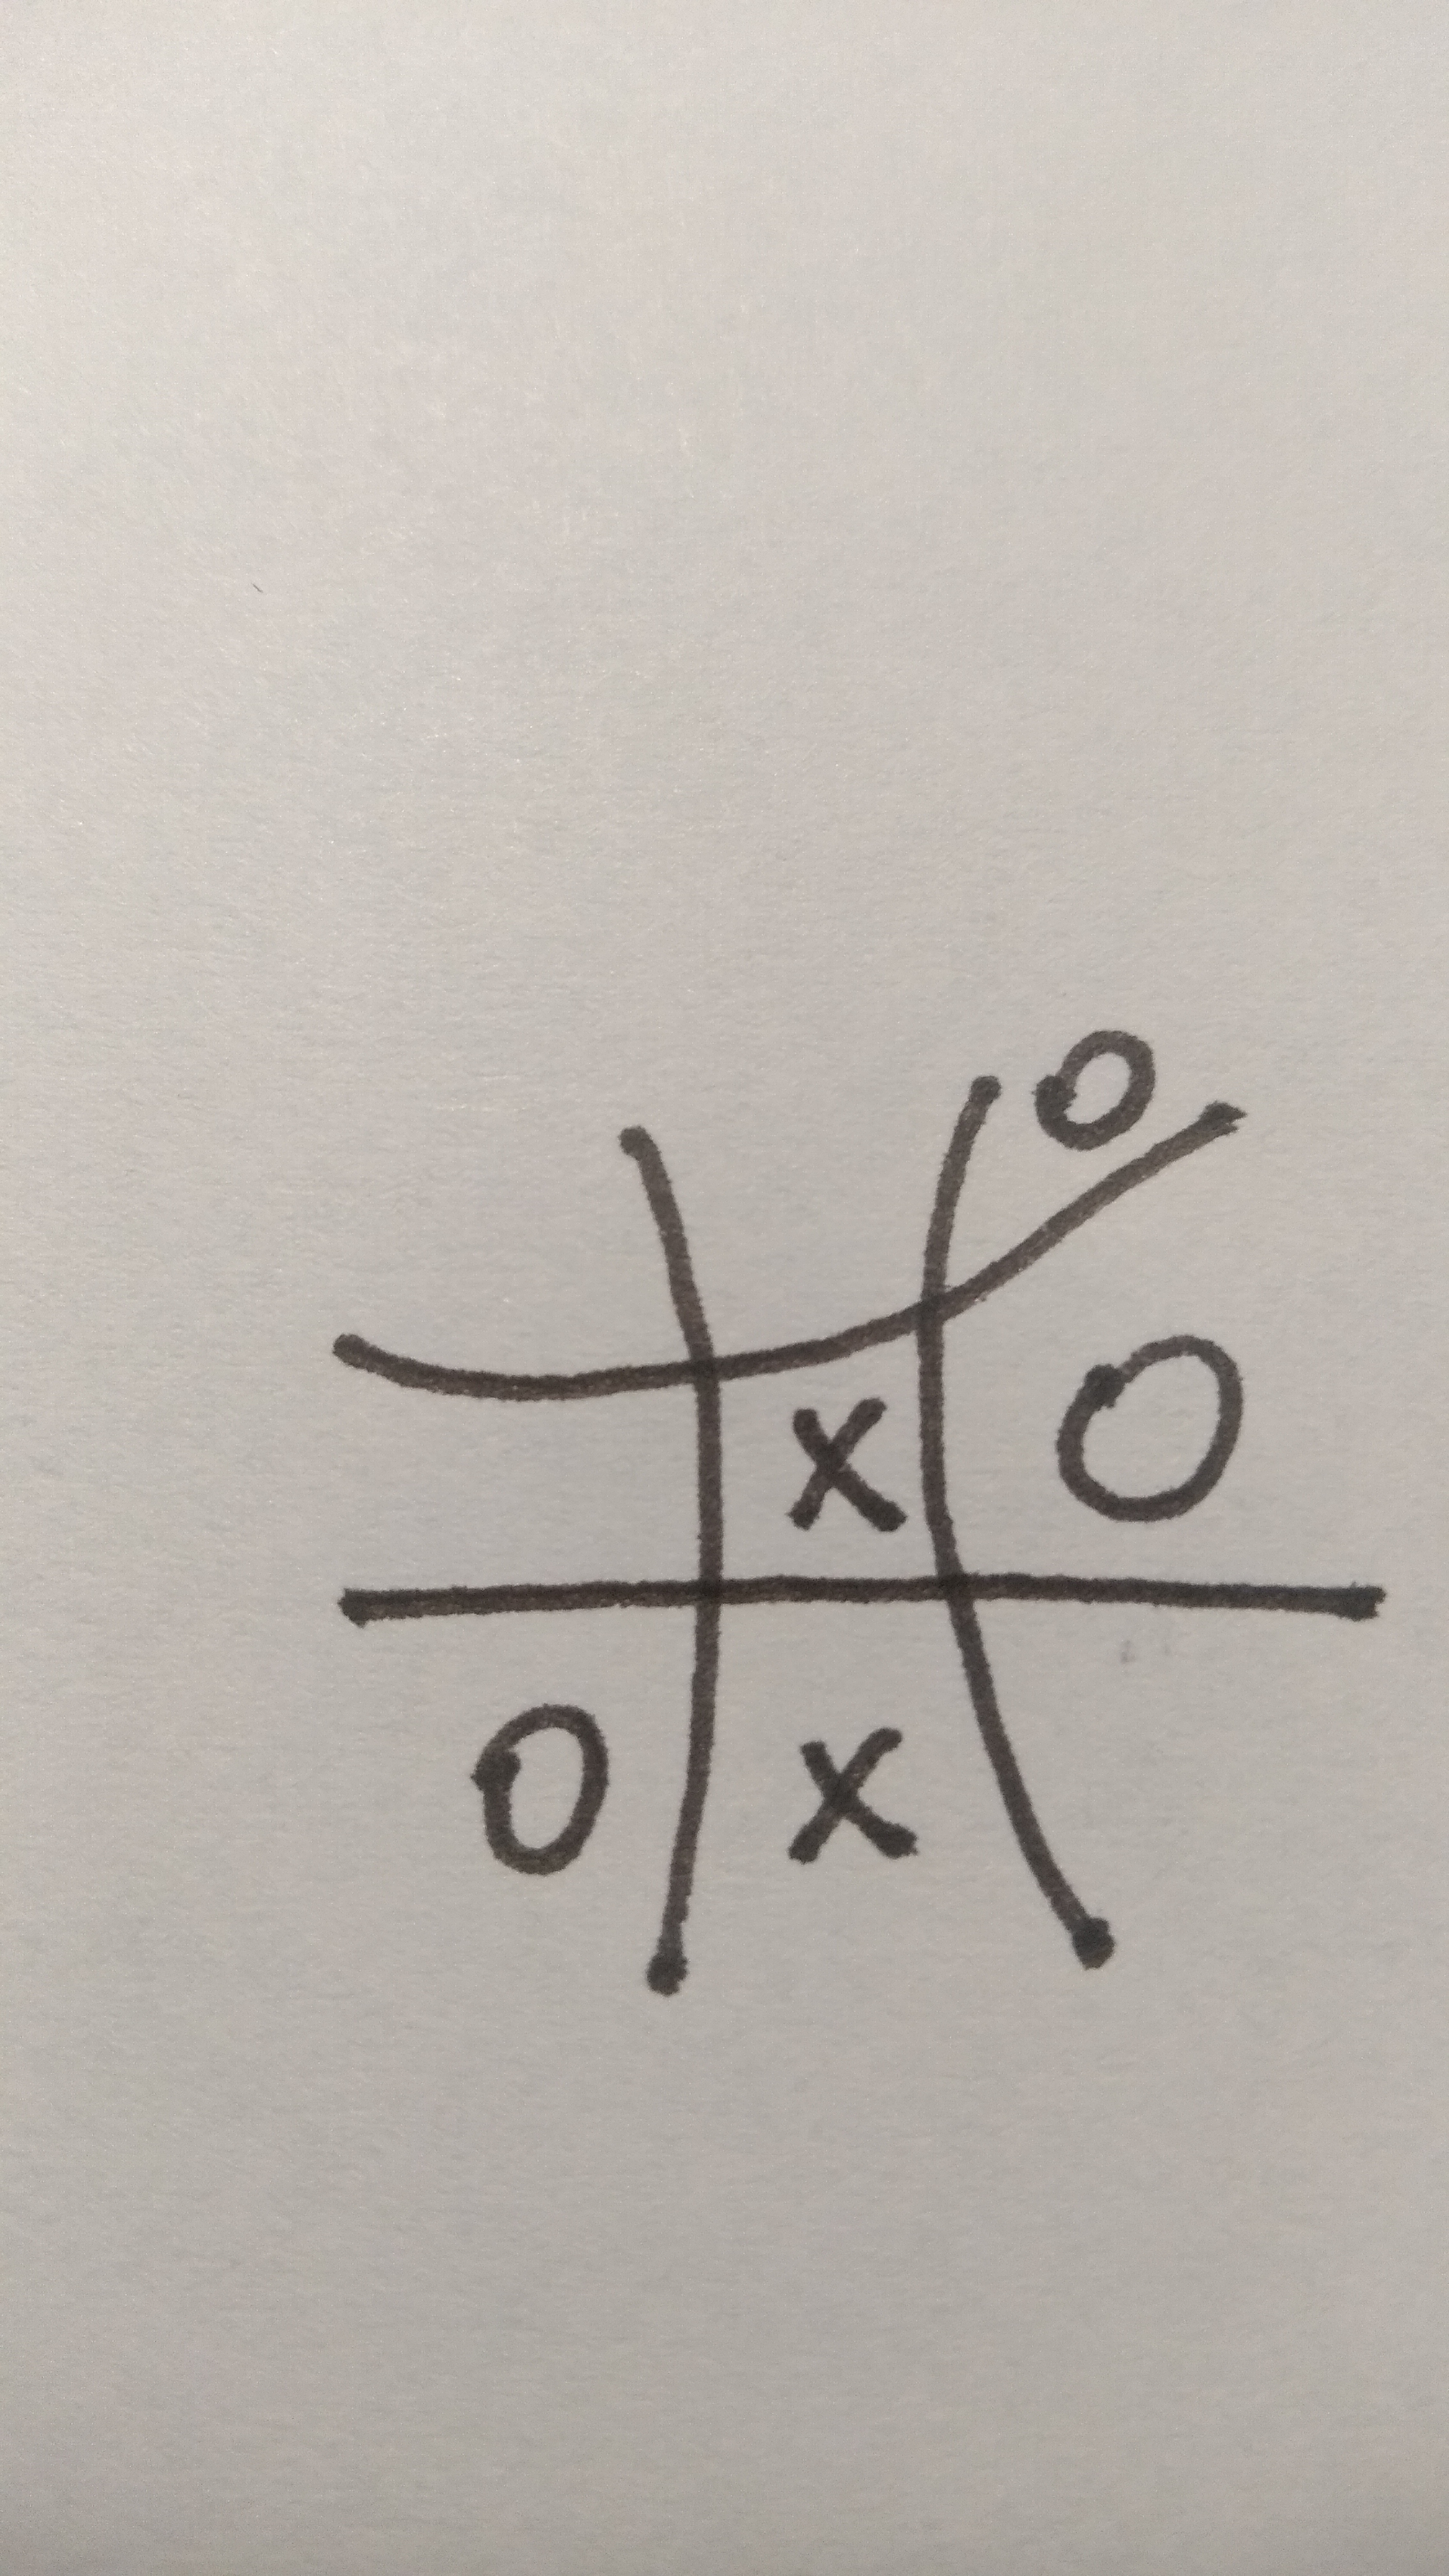 O
X O
O X